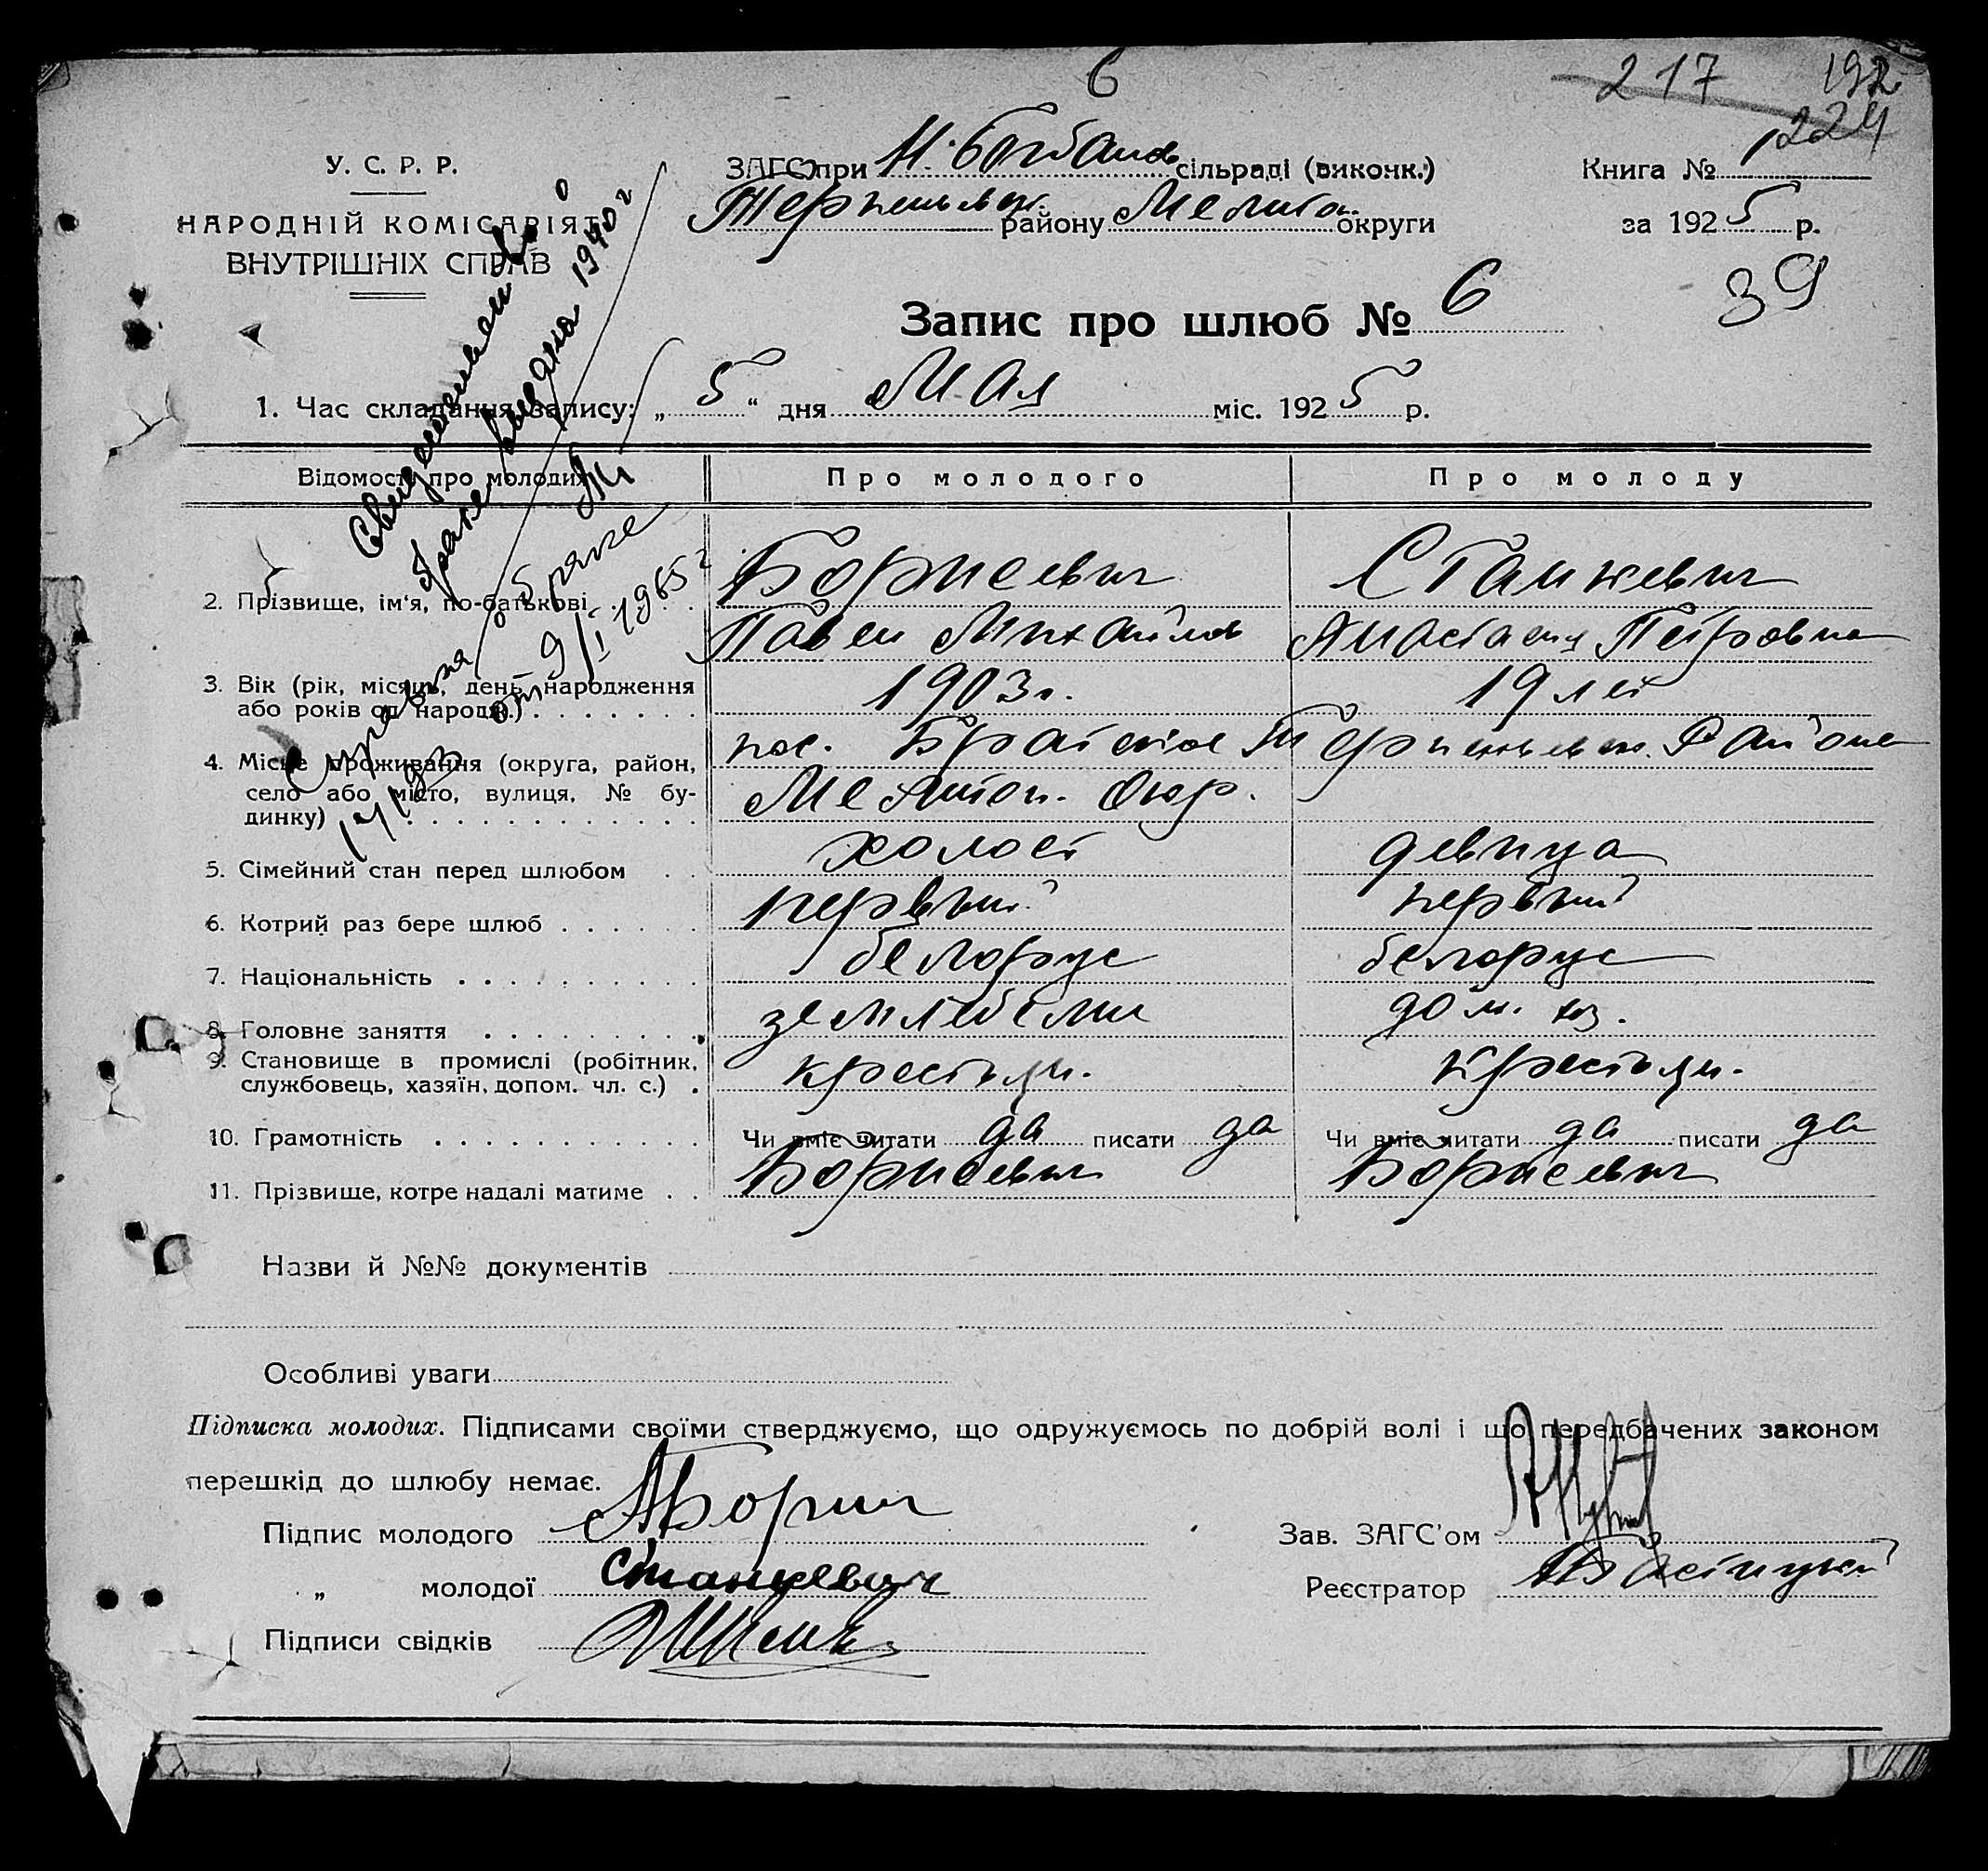 6
217
192
224
У. С. Р. Р.
НАРОДНІЙ КОМІСАРІЯТ
ВНУТРІШНІХ СПРАВ
ЗАГС при Н. Богданов сільраді (виконк.)
Терпеньевск. району Мелитоп. округи
Книга № 1
за 1925 р.
39
Запис про шлюб № 6
1. Час складання запису: „5“ дня Мая міс. 1925 р.
Свидетельство о
браке выдана 1940 г
Справка о браке
от 9/I 1965 г
Відомості про молодих
Про молодого
Про молоду
2. Прізвище, ім‘я, по-батькові
Борисевич
Павел Михайлов
Станкевич
Анастасия Петровна
3. Вік (рік, місяць, день народження
або років од народж.)
1903 г.
19 лет
4. Місце проживання (округа, район,
село або місто, вулиця, № бу-
динку)
пос. Братское Терпеньевск. Района
Мелитоп. Окр.
5. Сімейний стан перед шлюбом
холост
девица
6. Котрий раз бере шлюб
первый
первый
7. Національність
белорус
белорус
8. Головне заняття
дом. хоз.
9. Становище в промислі (робітник,
службовець, хазяїн, допом. чл. с.)
крестьян.
крестьян.
10. Грамотність
Чи вміє читати да писати да
Чи вміє читати да писати да
11. Прізвище, котре надалі матиме
Борисевич
Борисевич
Назви й №№ документів
Особливі уваги
Підписка молодих. Підписами своїми стверджуємо, що одружуємось по добрій волі і що передбачених законом
перешкід до шлюбу немає.
Підпис молодого
Зав. ЗАГС’ом
„ молодої Станкевич
Реєстратор
Підписи свідків